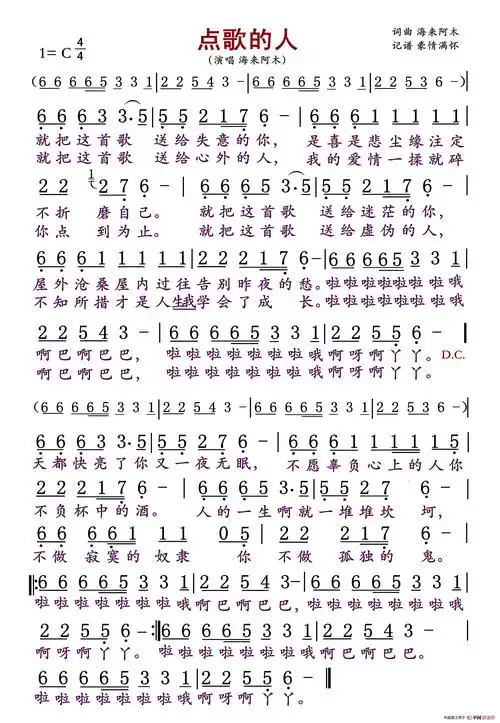 点歌的人
(演唱 海来阿木)
词曲 海来阿木
记谱 豪情满怀
1=C 4/4
(6 6 6 6 5 3 3 1 | 2 2 5 4 3 - | 6 6 6 6 5 3 3 1 | 2 2 5 2 6 -)
6 6 6 3 3·5 | 5 5 2 1 7 6 - | 6 6 6 1 1 1 1 1 5
就把这首歌 送给失意的你, 是喜是悲尘缘注定
就把这首歌 送给心外的人, 我的爱情一揉就碎
2 2 1 2 1 7 6 - | 6 6 6 5 3· | 5 5 2 1 7 6 -
不折 磨自己。 就把这首歌 送给迷茫的你,
你点 到为止。 就把这首歌 送给虚伪的人,
6 6 6 1 1 1 1 1 | 2 2 1 2 2 1 7 6 - | 6 6 6 6 5 3 3 1
屋外沧桑屋内过往告别昨夜的愁。啦啦啦啦啦啦啦哦
不知所措才是人生我学会了成 长。啦啦啦啦啦啦啦哦
2 2 5 4 3 - | 6 6 6 6 5 3 3 1 | 2 2 5 5 6 - ‖
啊巴啊巴巴, 啦啦啦啦啦啦啦哦啊呀啊丫丫。D.C.
啊巴啊巴巴, 啦啦啦啦啦啦啦哦啊呀啊丫丫。
(6 6 6 6 5 3 3 1 | 2 2 5 4 3 - | 6 6 6 6 5 3 3 1 | 2 2 5 2 6 -)
6 6 6 3 3·5 | 5 5 2 1 7 6 - | 6 6 6 1 1 1 1 1 5
天都快亮了你又一夜无眠, 不愿辜负心上的人你
2 2 2 1 7 6 - | 6 6 6 5 3· 5 | 5 5 2 1 7 6 -
不负杯中的酒。 人的一生啊就一堆堆坎 坷,
6 6 6 6 1 1 | 1 7 6 5 3 - | 2 2 2 1 7 5 | 6 - - -
不做 寂寞的奴隶 你 不做 孤独的 鬼。
‖: 6 6 6 6 5 3 3 1 | 2 2 5 4 3 - | 6 6 6 6 5 3 3 1
啦啦啦啦啦啦啦哦啊巴啊巴巴, 啦啦啦啦啦啦啦哦
2 2 5 5 6 - :‖ 6 6 6 6 5 3 3 1 | 2 2 5 4 3 -
啊呀啊丫丫。啦啦啦啦啦啦啦哦啊巴啊巴巴。
6 6 6 6 5 3 3 1 | 2 2 5 5 6 - ‖
啦啦啦啦啦啦啦哦啊呀啊丫丫。